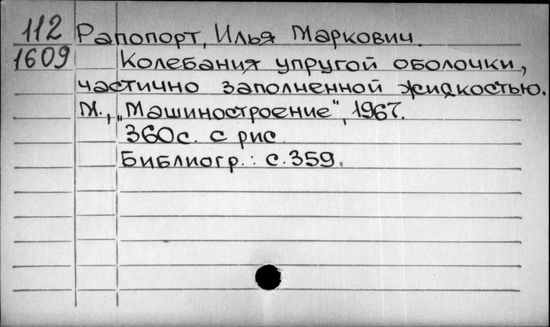 112 Рапопорт, Илья Маркович.
1609 Колебания упругой оболочки,
частично заполненной жидкостью.
М., „Машиностроение", 1967.
360с. с рис.
Библиогр.: с.359.